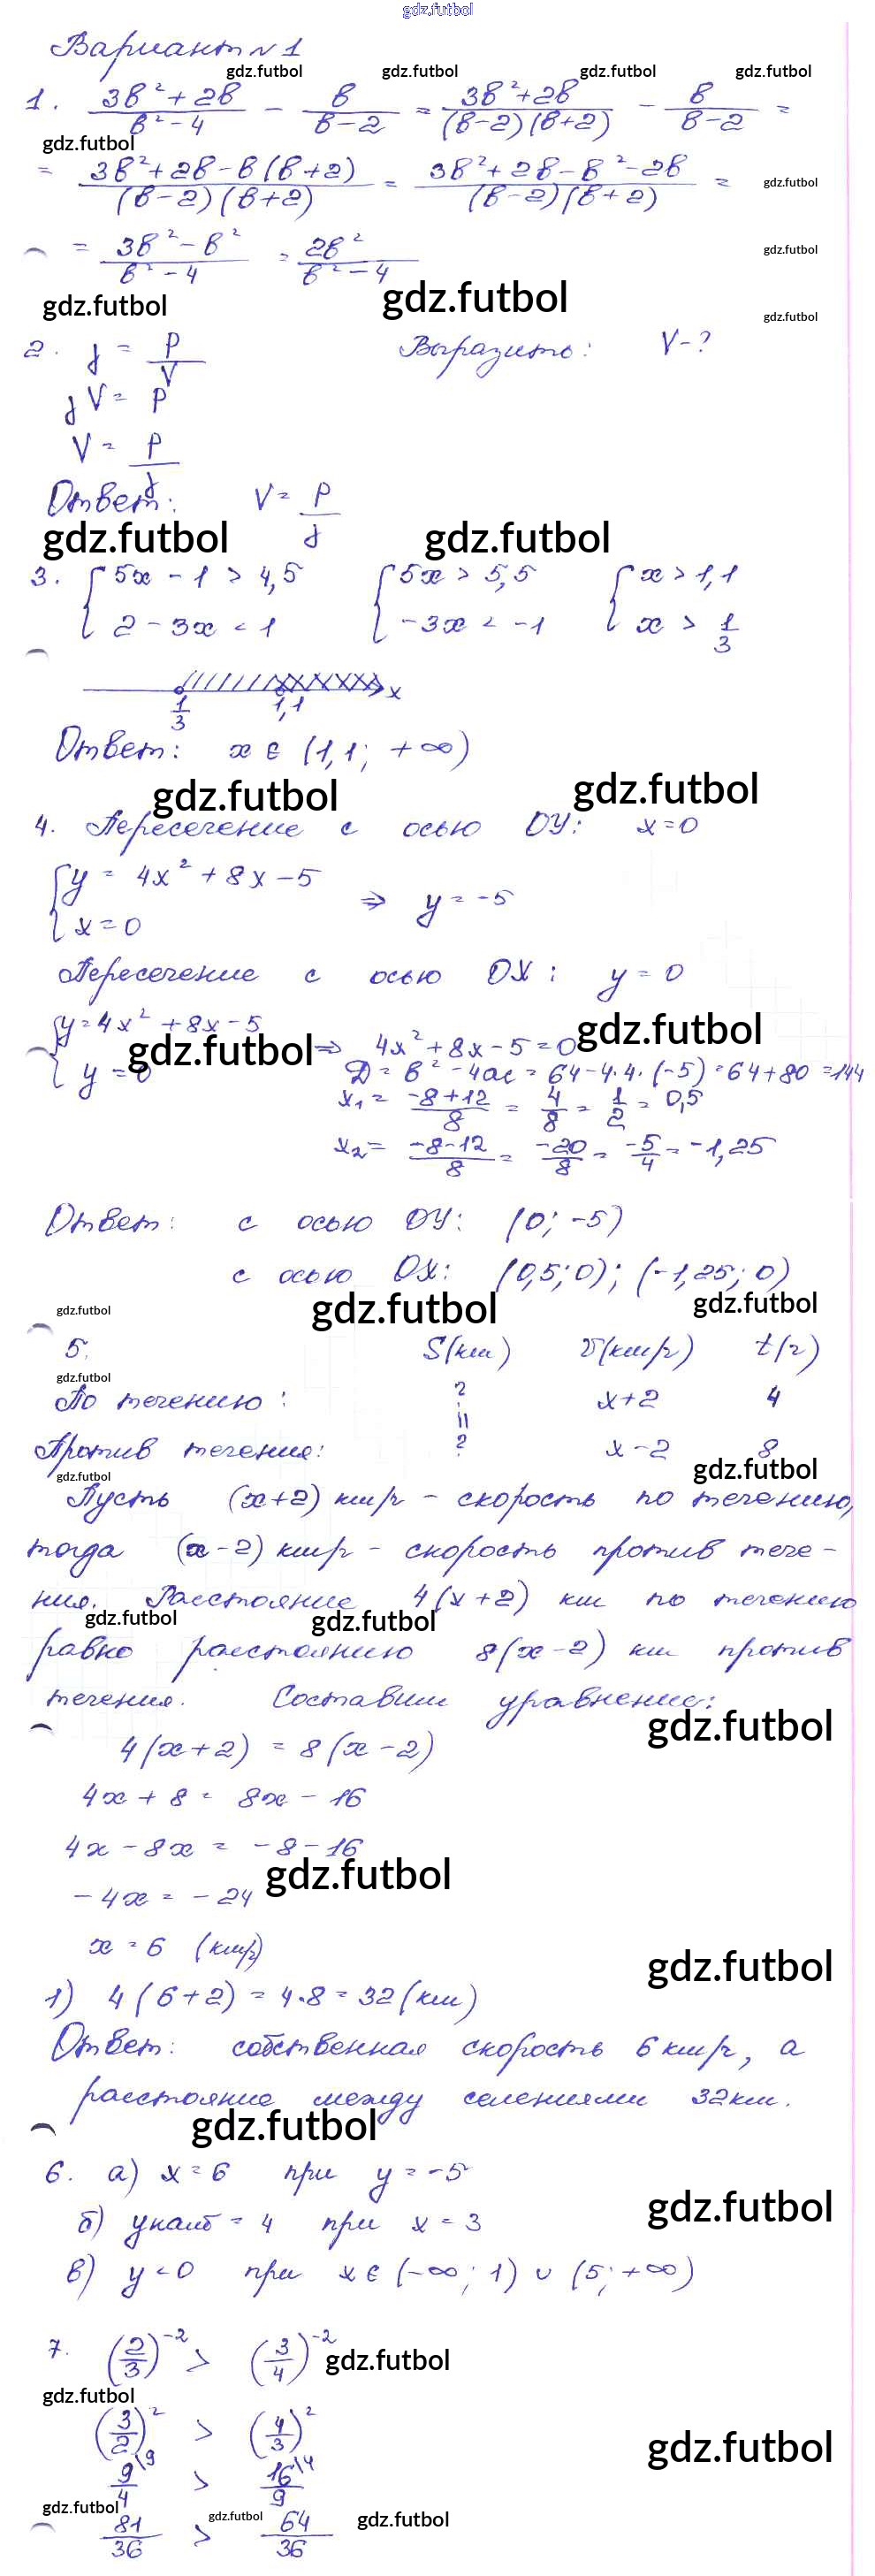 gdz.futbol
Вариант №1
gdz.futbol gdz.futbol gdz.futbol gdz.futbol
1. (3в²+2в)/(в²-4) - в/(в-2) = (3в²+2в)/((в-2)(в+2)) - в/(в-2) =
gdz.futbol
= (3в²+2в-в(в+2))/((в-2)(в+2)) = (3в²+2в-в²-2в)/((в-2)(в+2)) =
gdz.futbol
= (3в²-в²)/(в²-4) = 2в²/(в²-4)
gdz.futbol
gdz.futbol gdz.futbol
gdz.futbol
2. j = P/V Выразить: V-?
jV = P
V = P/j
Ответ: V = P/j
gdz.futbol gdz.futbol
3. { 5x-1 > 4,5 { 5x > 5,5 { x > 1,1
2-3x < 1 -3x < -1 x > 1/3
1/3 1,1 x
Ответ: x ∈ (1,1; +∞)
gdz.futbol gdz.futbol
4. Пересечение с осью OY: x=0
{ y = 4x²+8x-5
x=0 ⇒ y = -5
Пересечение с осью OX: y = 0
{ y=4x²+8x-5
gdz.futbol
y=0 gdz.futbol ⇒ 4x²+8x-5=0
D = в²-4ac = 64-4·4·(-5) = 64+80 = 144
x₁ = (-8+12)/8 = 4/8 = 1/2 = 0,5
x₂ = (-8-12)/8 = -20/8 = -5/4 = -1,25
Ответ: с осью OY: (0; -5)
с осью OX: (0,5; 0); (-1,25; 0)
gdz.futbol gdz.futbol gdz.futbol
5. S(км) V(км/ч) t(ч)
gdz.futbol
По течению: ? x+2 4
=
Против течения: ? x-2 8
gdz.futbol gdz.futbol
Пусть (x+2) км/ч - скорость по течению,
тогда (x-2) км/ч - скорость против тече-
ния. Расстояние 4(x+2) км по течению
gdz.futbol gdz.futbol
равно расстоянию 8(x-2) км против
течения. Составим уравнение:
gdz.futbol
4(x+2) = 8(x-2)
4x+8 = 8x-16
4x-8x = -8-16
gdz.futbol
-4x = -24
x = 6 (км/ч)
gdz.futbol
1) 4(6+2) = 4·8 = 32 (км)
Ответ: собственная скорость 6 км/ч, а
расстояние между селениями 32км.
gdz.futbol
6. а) x=6 при y=-5
gdz.futbol
б) yнаиб = 4 при x = 3
в) y<0 при x ∈ (-∞; 1) ∪ (5; +∞)
7. (2/3)⁻² > (3/4)⁻²
gdz.futbol
gdz.futbol
(3/2)² > (4/3)²
gdz.futbol
9/4 \9 > 16/9 \4
gdz.futbol gdz.futbol gdz.futbol
81/36 > 64/36